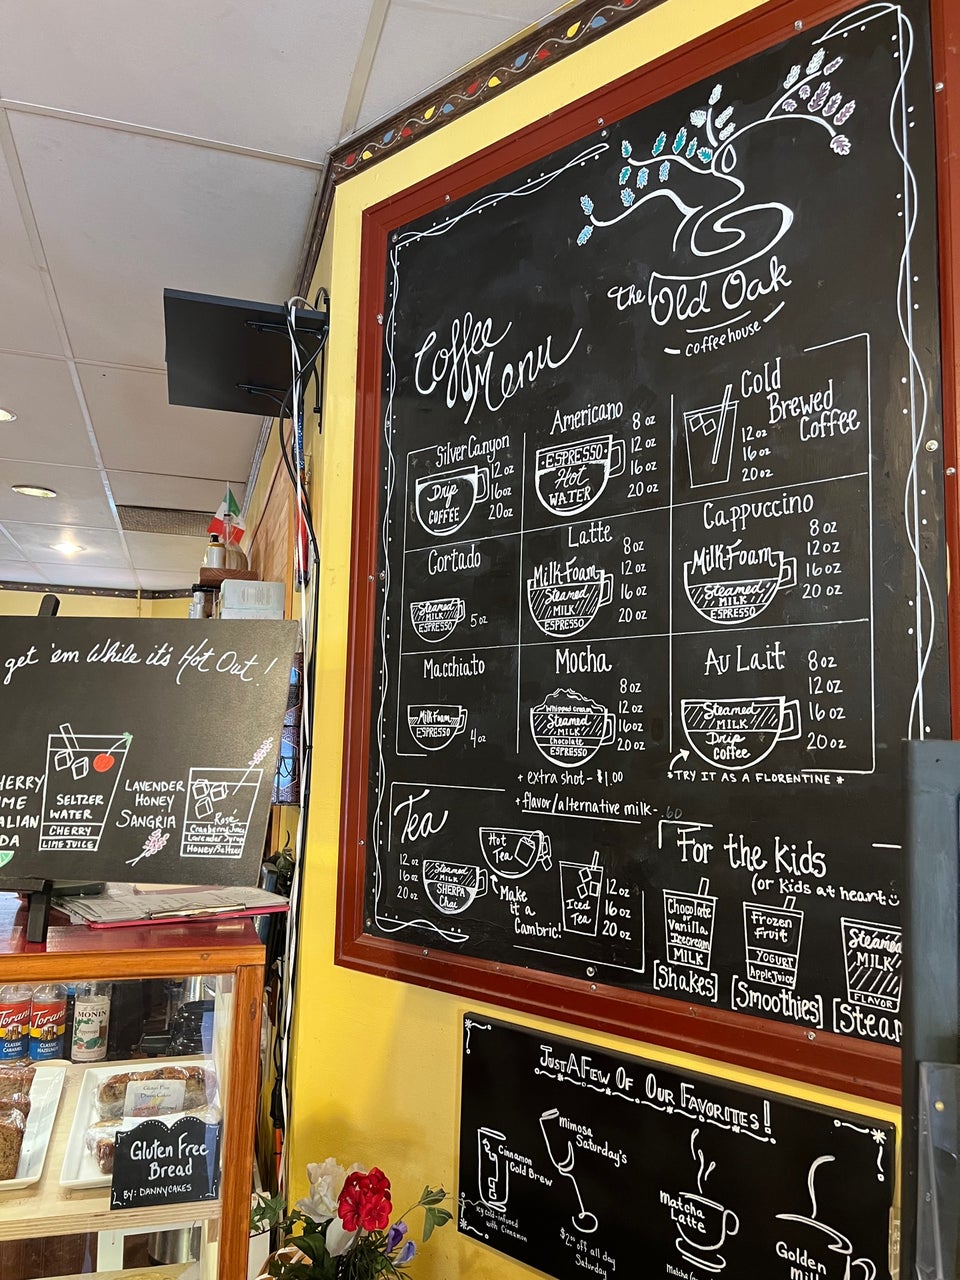 the Old Oak
coffeehouse
Coffee
Menu
Silver Canyon
12 oz
16 oz
20 oz
Drip
COFFEE
Americano
8 oz
12 oz
16 oz
20 oz
ESPRESSO
Hot
WATER
Cold
Brewed
Coffee
12 oz
16 oz
20 oz
Cortado
Steamed
MILK
ESPRESSO
5 oz
Latte
8 oz
12 oz
16 oz
20 oz
Milk Foam
Steamed
MILK
ESPRESSO
Cappuccino
8 oz
12 oz
16 oz
20 oz
Milk Foam
Steamed
MILK
ESPRESSO
Macchiato
Milk Foam
ESPRESSO
4 oz
Mocha
8 oz
12 oz
16 oz
20 oz
Whipped Cream
Steamed
MILK
Chocolate
ESPRESSO
Au Lait
8 oz
12 oz
16 oz
20 oz
Steamed
MILK
Drip
Coffee
*TRY IT AS A FLORENTINE*
+ extra shot - $1.00
+ flavor/alternative milk - .60
Tea
12 oz
16 oz
20 oz
Steamed
MILK
SHERPA
Chai
Hot
Tea
Make
it a
Cambric!
Iced
Tea
12 oz
16 oz
20 oz
For the kids
(or kids at heart
Chocolate
or
Vanilla
Icecream
MILK
[Shakes]
Frozen
Fruit
YOGURT
Apple Juice
[Smoothies]
Steamed
MILK
FLAVOR
[Stea
JUST A FEW OF OUR FAVORITES!
Cinnamon
Cold Brew
icy cold-infused
with Cinnamon
Mimosa
Saturday's
$2.00 off all day
Saturday
Matcha
Latte
Matcha
Golden
Milk
get 'em While it's Hot Out!
HERRY
IME
ALIAN
DA
SELTZER
WATER
CHERRY
LIME JUICE
LAVENDER
HONEY
SANGRIA
Rosé
Cranberry Juice
Lavender Syrup
Honey/Seltzer
Torani
CLASSIC
CARAMEL
Torani
CLASSIC
HAZELNUT
MONIN
Gluten Free
Gluten Free
Bread
BY: DANNYCAKES